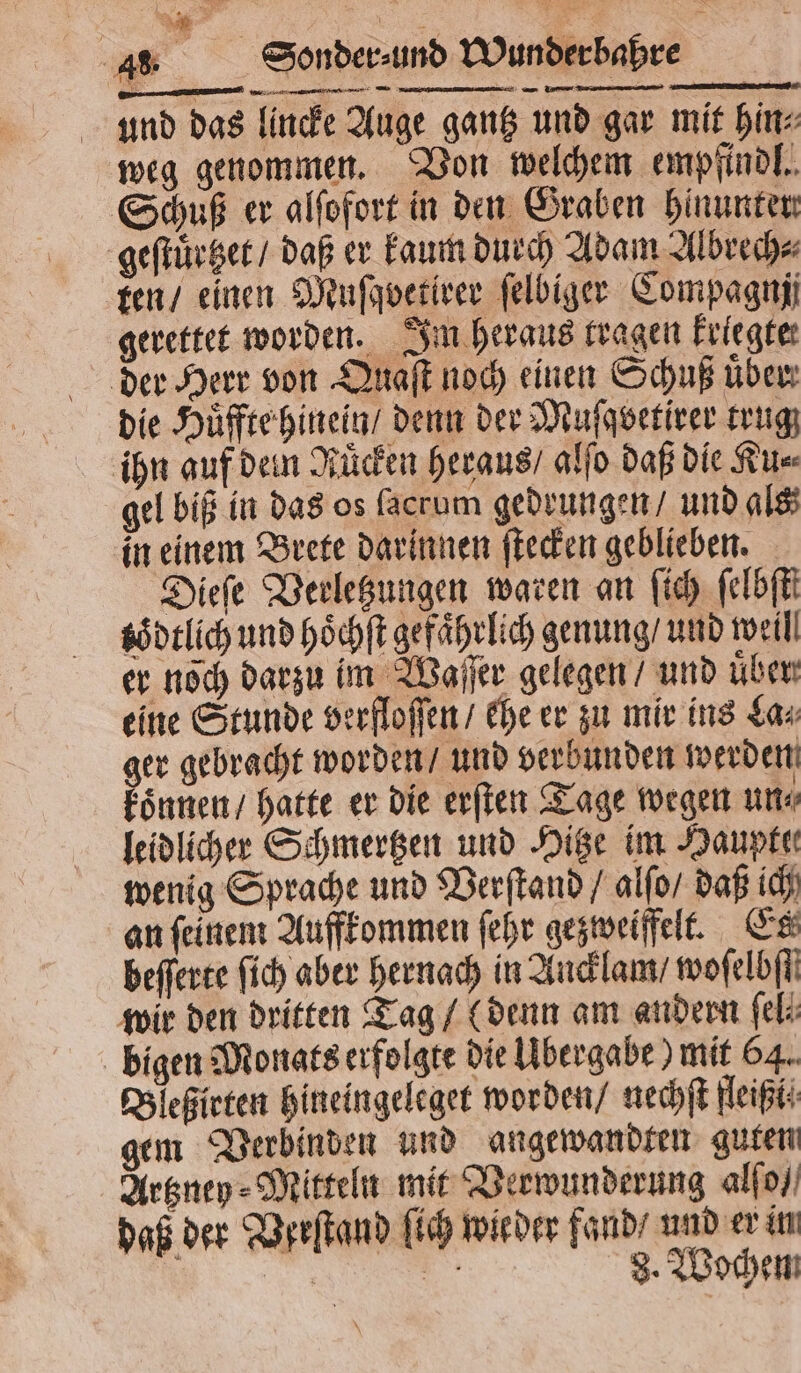 48. Sonder⸗und Wunderbahre
und das lincke Auge gantz und gar mit hin⸗
weg genommen. Von welchem empfindl.
Schuß er alſofort in den Graben hinunter
geſtuͤrtzet / daß er kaum durch Adam Albrech⸗
ten / einen Muſqvetirer ſelbiger Compagnj
gerettet worden. Im heraus tragen kriegte
der Herr von Quaſt noch einen Schuß uͤber
die Huͤffte hinein / denn der Muſqvetirer trug
ihn auf dem Ruͤcken heraus / alſo daß die Ku⸗
gel biß in das os ſacrum gedrungen / und als
in einem Brete darinnen ſtecken geblieben.
Dieſe Verletzungen waren an ſich ſelbſt
toͤdtlich und hoͤchſt gefaͤhrlich genung / und weil
er noch darzu im Waſſer gelegen / und uͤber
eine Stunde verfloſſen / ehe er zu mir ins La⸗
ger gebracht worden / und verbunden werden
koͤnnen / hatte er die erſten Tage wegen un⸗
leidlicher Schmertzen und Hitze im Haupte
wenig Sprache und Verſtand / alſo / daß ich
an ſeinem Auffkommen ſehr gezweiffelt. Es
beſſerte ſich aber hernach in Ancklam / woſelbſt
wir den dritten Tag / (denn am andern ſel⸗
bigen Monats erfolgte die Ubergabe) mit 64.
Bleßirten hineingeleget worden / nechſt fleißi⸗
gem Verbinden und angewandten guten
Artzney⸗Mitteln mit Verwunderung alſo /
daß der Verſtand ſich wieder fand / und er in
8. Wochen